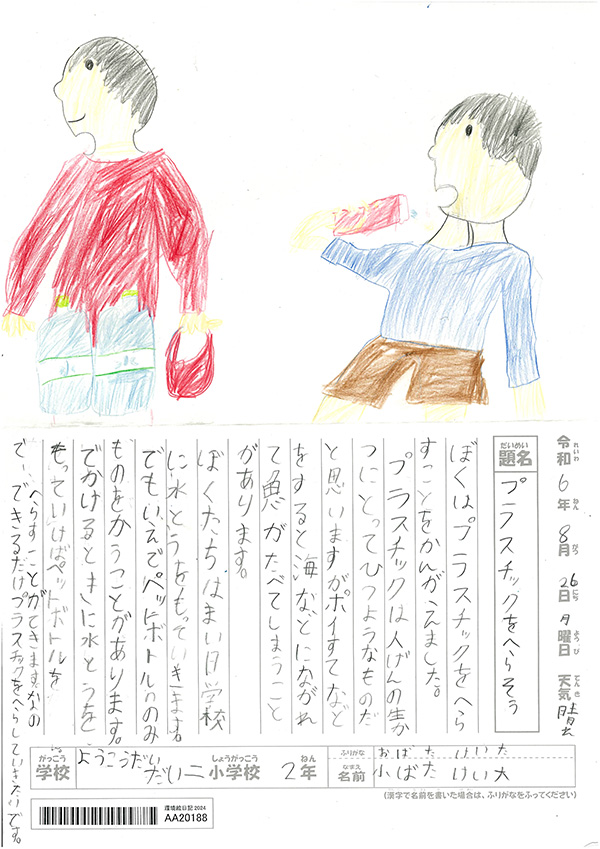 令和6年8月26日月曜日 天気 晴
れいわ ねん がつ にち ようび てんき
だいめい
題名 プラスチックをへらそう
ぼくはプラスチックをへら
すことをかんがえました。
プラスチックは人げんの生か
つにとってひつようなものだ
と思いますがポイすてなど
をすると海などにながれ
て魚がたべてしまうこと
があります。
ぼくたちはまい日学校
に水とうをもっていきます。
でもいえでペットボトルののみ
ものをかうことがあります。
でかけるときに水とうを
もっていけばペットボトルを
へらすことができますなの
で、できるだけプラスチックをへらしていきたいです。
がっこう しょうがっこう ねん
学校 ようこうだい だい二 小学校 2年
ふりがな おばた けいた
なまえ
名前 小ばた けい太
(漢字で名前を書いた場合は、ふりがなをふってください)
環境絵日記2024
AA20188